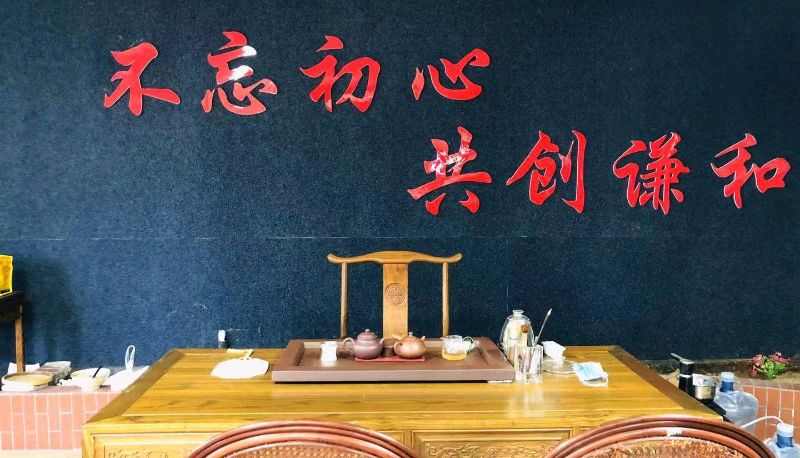 不忘初心
共创谦和